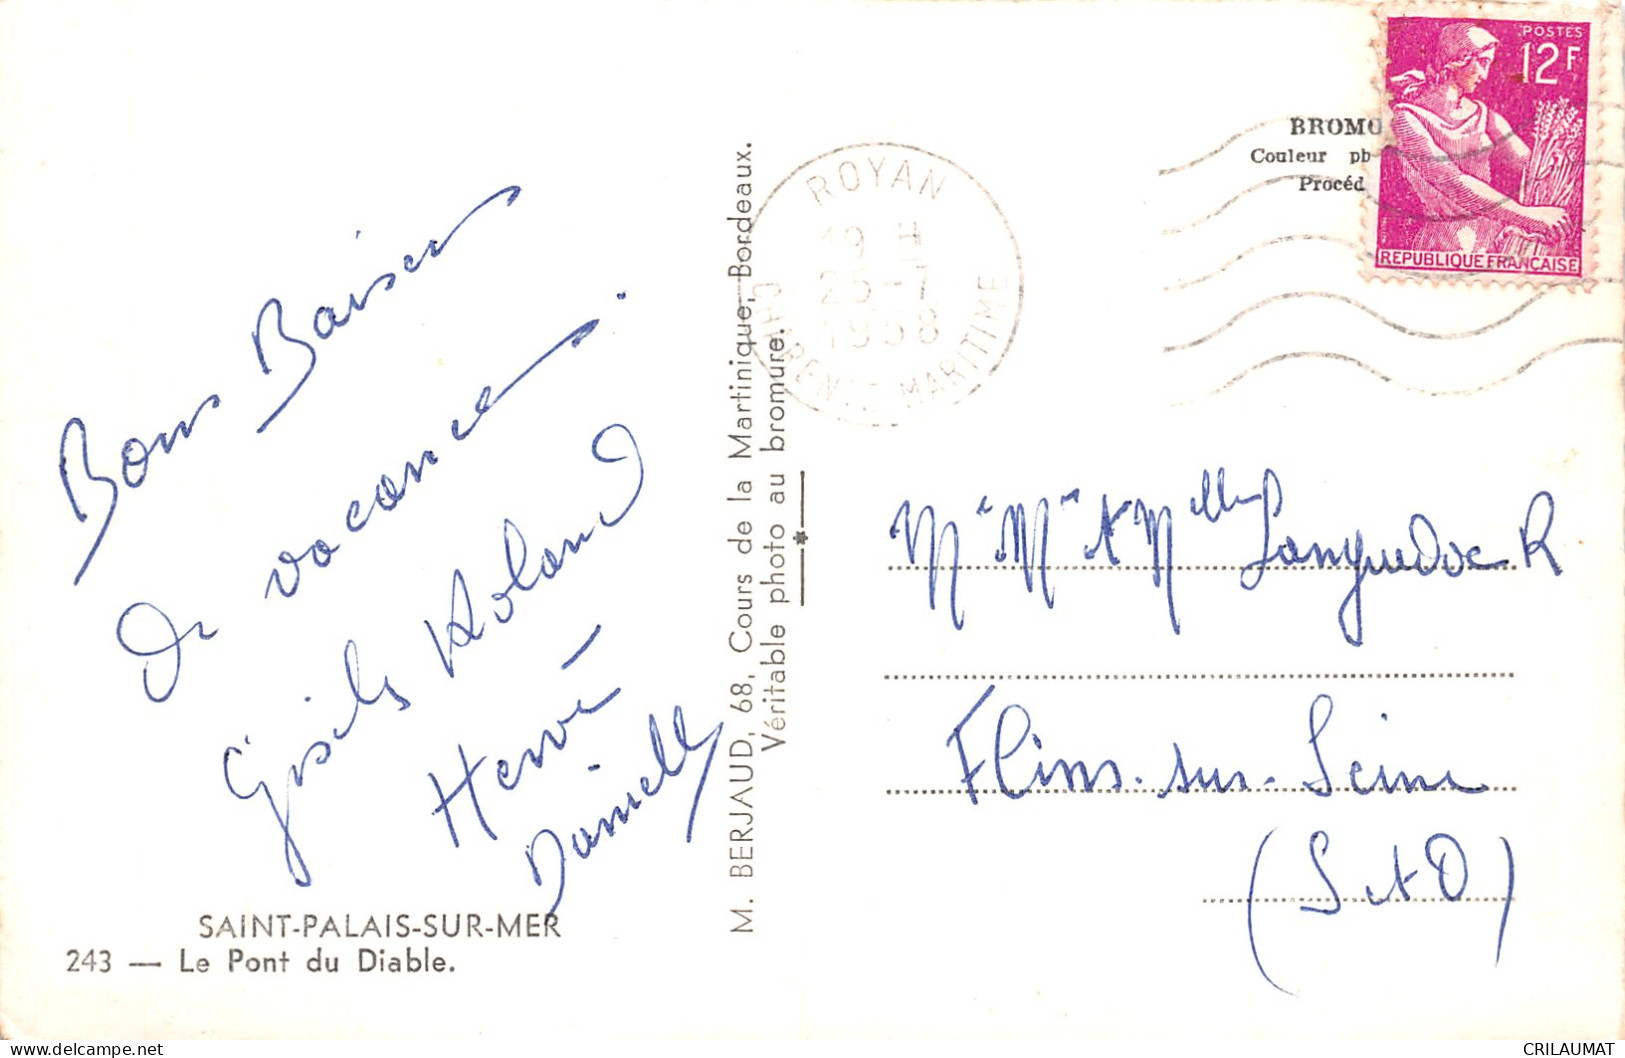 Bons Baisers
de vacances.
Gisèle & Roland
Hervé
Danielle
SAINT-PALAIS-SUR-MER
243 — Le Pont du Diable.
M. BERJAUD, 68, Cours de la Martinique, Bordeaux.
Véritable photo au bromure.
ROYAN
19 H
25-7
1958
CHARENTE MARITIME
BROMO
Couleur ph
Procéd
POSTES
12F
REPUBLIQUE FRANÇAISE
Mr Mme & Melles Languedoc R
Flins-sur-Seine
(S & O)
CRILAUMAT